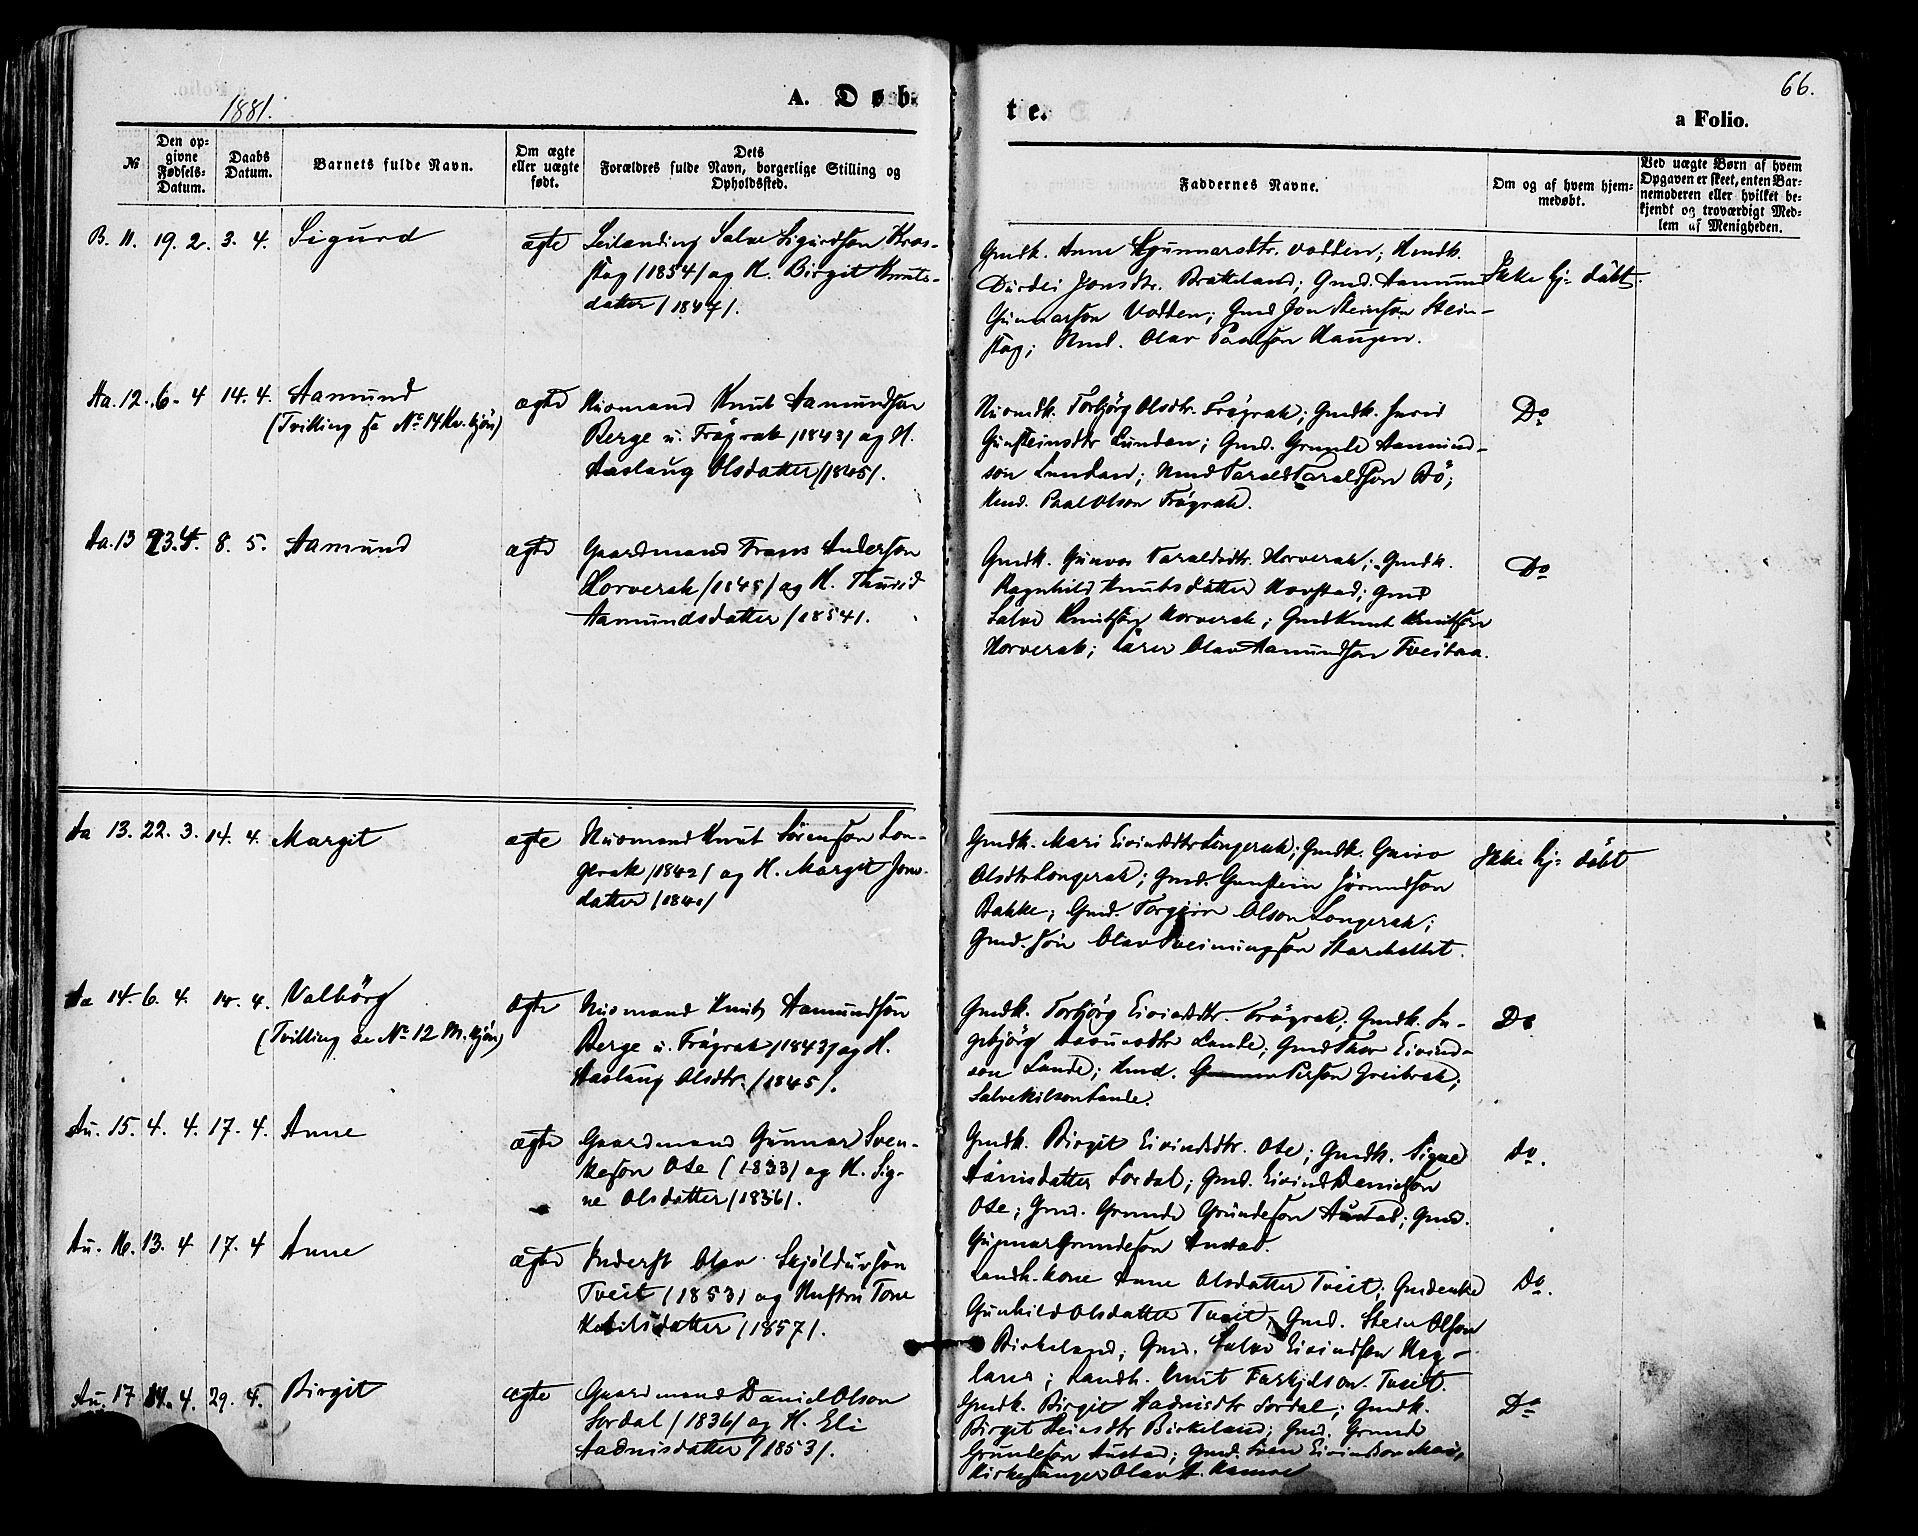 66.
1881.
A. Døb-
te.
a Folio.
№
Den op-
givne
Fødsels-
Datum.
Daabs
Datum.
Barnets fulde Navn.
Om ægte
eller uægte
født.
Dets
Forældres fulde Navn, borgerlige Stilling og
Opholdssted.
Faddernes Navne.
Om og af hvem hjem-
medøbt.
Ved uægte Børn af hvem
Opgaven er skeet, enten Bar-
nemoderen eller hvilket be-
kjendt og troværdigt Med-
lem af Menigheden.
B. 11. 19. 2. 3. 4. Sigurd ægte Leilænding Salve Sigurdson
/1854/ og H. Birgit Knuts-
datter /1847/.
Gmdk. Anne Gunnarsdtr. Vodden;
Jonsdtr. Bratteland; Gmd. Aamund
Gunnarson Vodden; Gmd Jon Steinson
Olav Haugen.
Ikke hj: döbt.
Aa. 12. 6. 4 14. 4. Aamund ægte Husmand Knut Aamundson
(Tvilling se No 14 Kv. kjön)
Berge u. Frögrak /1843/ og H.
Aaslaug Olsdatter /1845/.
Husmdk. Torbjörg Olsdtr. Frögrak; Gmdk.
Gunsteinsdtr Lundan; Gmd. Grunde Aamund-
son Lundan; Tarald Taraldson Bö;
Paal Olson Frögrak.
Do
Aa. 13 23. 4. 8. 5. Aamund ægte Gaardmand Frans Anderson
Horverak /1845/ og H. Thurid
Aamundsdatter /1854/.
Gmdk. Gunvor Taraldsdtr. Horverak; Gmdk.
Ragnhild Knutsdatter Havstad; Gmd
Salve Knutson Horverak; Gmd Knut Knutson
Horverak; Lærer Olav Aamundson Tveitaa.
Do
Aa 13. 22. 3. 14. 4. Margit ægte Husmand Knut Sörenson Lon-
gerak /1842/ og H. Margit Jons-
datter /1840/
Gmdk. Mari Eivindsdtr Longerak; Gmdk.
Olsdtr Longerak; Gmd. Gunstein
Bakke; Gmd. Torgeir Olson Longerak;
Gmd. sön Olav
Ikke hj: döbt
Aa 14. 6. 4. 14. 4. Valbörg ægte Husmand Knut Aamundson
(Tvilling se No 12 M. kjön)
Berge u. Frögrak /1843/ og H.
Aaslaug Olsdtr. /1845/.
Gmdk. Torbjörg Eivindsdtr. Frögrak; Gmdk. In-
gebjörg Lande; Gmd Thor Eivind-
son Lande; Person
Salve Nilson Lande.
Do
Au. 15. 4. 4. 17. 4. Anne ægte Gaardmand Gunnar Sven-
keson Ose (1833) og H. Sig-
ne Olsdatter /1836/.
Gmdk. Birgit Eivindsdtr. Ose; Gmdk. Signe
Sordal; Gmd. Eivind Danielson
Ose; Gmd. Grunde Grundeson Austad; Gmd.
Gunnar Grundeson Austad.
Do.
Au. 16. 13. 4 17. 4 Anne ægte Inderst Olav Skjöldulvson
Tveit (1853) og Hustru Tone
Ketilsdatter /1857/.
Anne Olsdatter Tveit; Gmdenke
Gunhild Olsdatter Tveit; Gmd. Stein Olson
Birkeland; Gmd. Salve Eivindson Heg-
land; Landh. Knut Tarkjelson Tveit.
Do.
Au. 17 14. 4. 29. 4. Birgit ægte Gaardmand Daniel Olson
Sordal /1836/ og H. Eli
Aadnisdatter /1853/.
Gmdk. Birgit Aadnisdtr Sordal; Gmdk.
Birgit Birkeland; Gmd. Grunde
Grundeson Austad; Gmd. Sven Eivindson
Kirkesanger Olav
Do